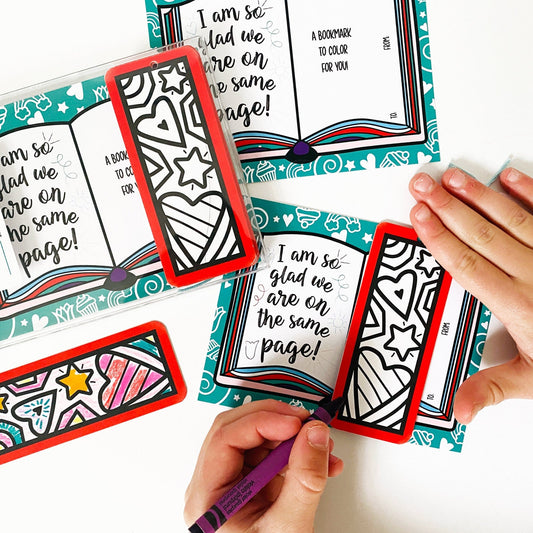 I am so
glad we
are on
the same
page!
A BOOKMARK
TO COLOR
FOR YOU!
FROM:
TO:
I am so
glad we
are on
the same
page!
A BOO
TO C
FOR Y
I am so
glad we
are on
the same
page!
FROM:
TO: